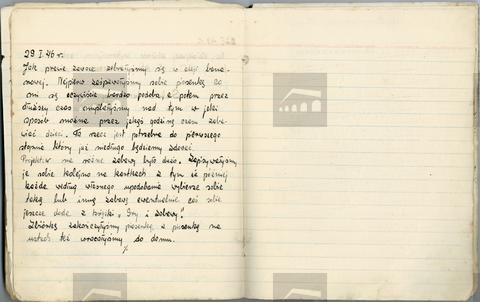 29 I. 46 r.
Jak prawie zawsze zebrałyśmy się w alei bana-
nowej. Najpierw zaśpiewałyśmy sobie piosenkę co
mi się oczywiście bardzo podoba, a potem przez
dłuższy czas myślałyśmy nad tym w jaki
sposób można przez jakąś godzinę czasu zaba-
wiać dzieci. Ta rzecz jest potrzebna do pierwszego
stopnia który już niedługo będziemy zdawać.
Projektów na różne zabawy było dużo. Zapisywałyśmy
je sobie kolejno na kartkach z tym iż później
każda według własnego upodobania wybierze sobie
taką lub inną zabawę ewentualnie coś sobie
jeszcze doda z książki „Gry i zabawy".
Zbiórkę zakończyłyśmy piosenką, z piosenką na
ustach też wracałyśmy do domu.